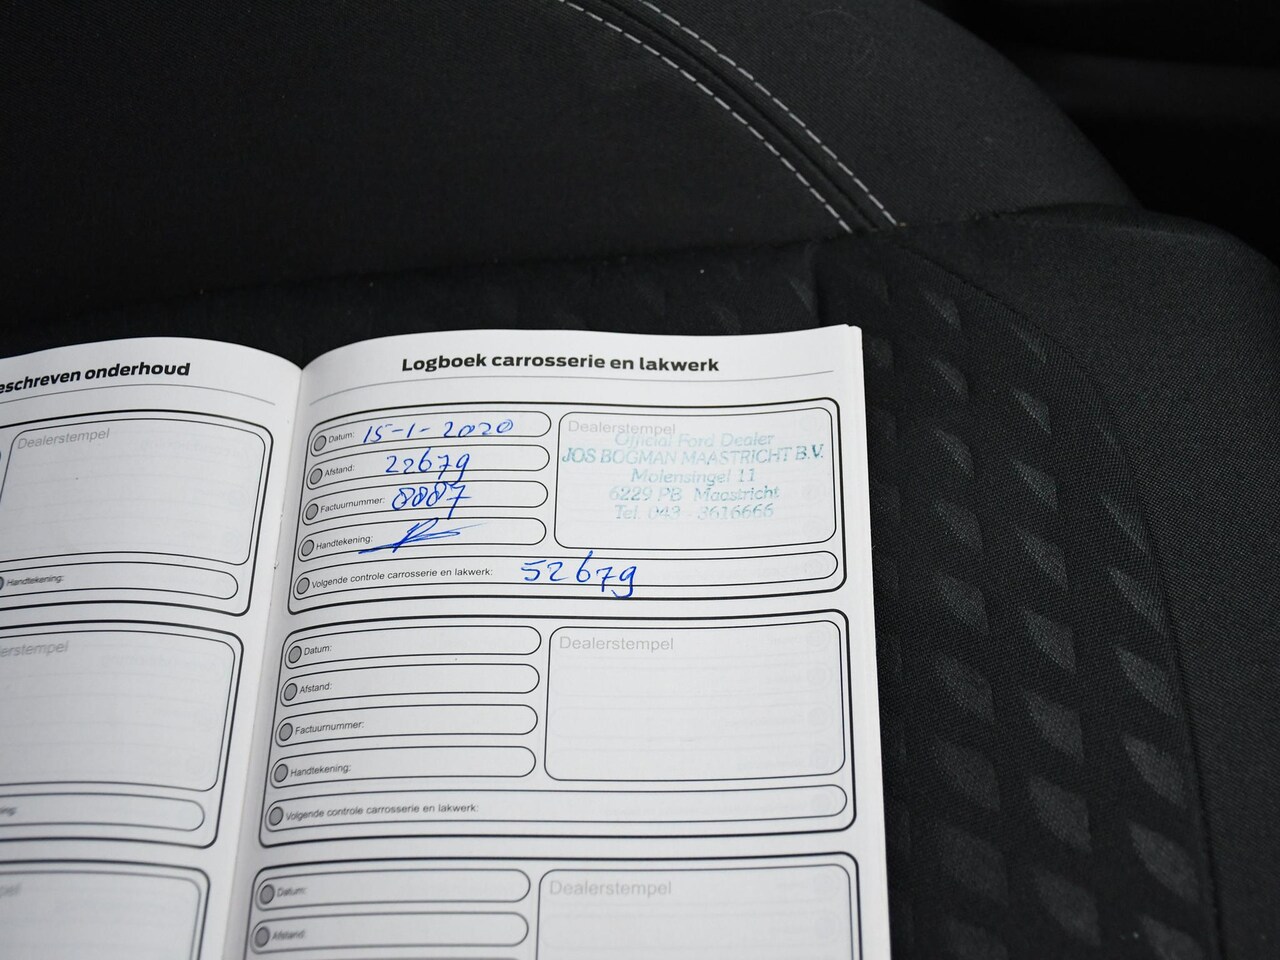 eschreven onderhoud
Dealerstempel
Handtekening:
erstempel
ing:
pel
Logboek carrosserie en lakwerk
Datum: 15-1-2020
Afstand: 22679
Factuurnummer: 8887
Handtekening:
Dealerstempel
Official Ford Dealer
JOS BOGMAN MAASTRICHT B.V.
Molensingel 11
6229 PB Maastricht
Tel. 043 - 3616666
Volgende controle carrosserie en lakwerk: 52679
Datum:
Afstand:
Factuurnummer:
Handtekening:
Dealerstempel
Volgende controle carrosserie en lakwerk:
Datum:
Afstand:
Dealerstempel